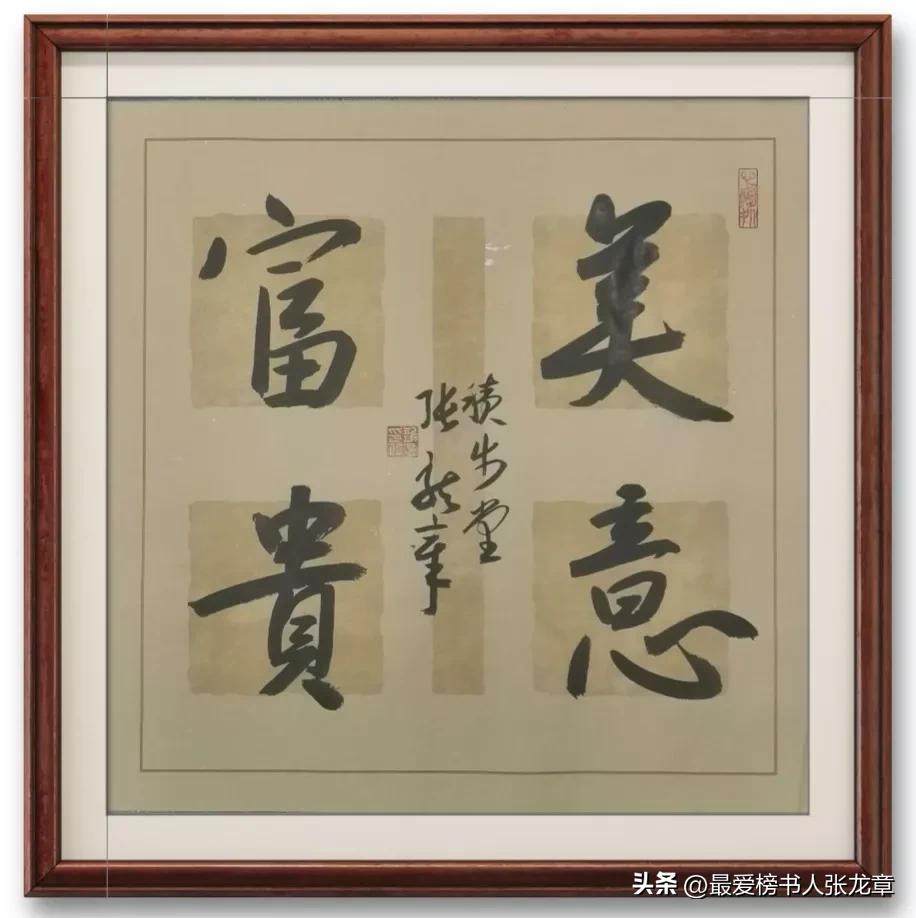 美意
富貴
積步堂
张龙章
头条 @最爱榜书人张龙章